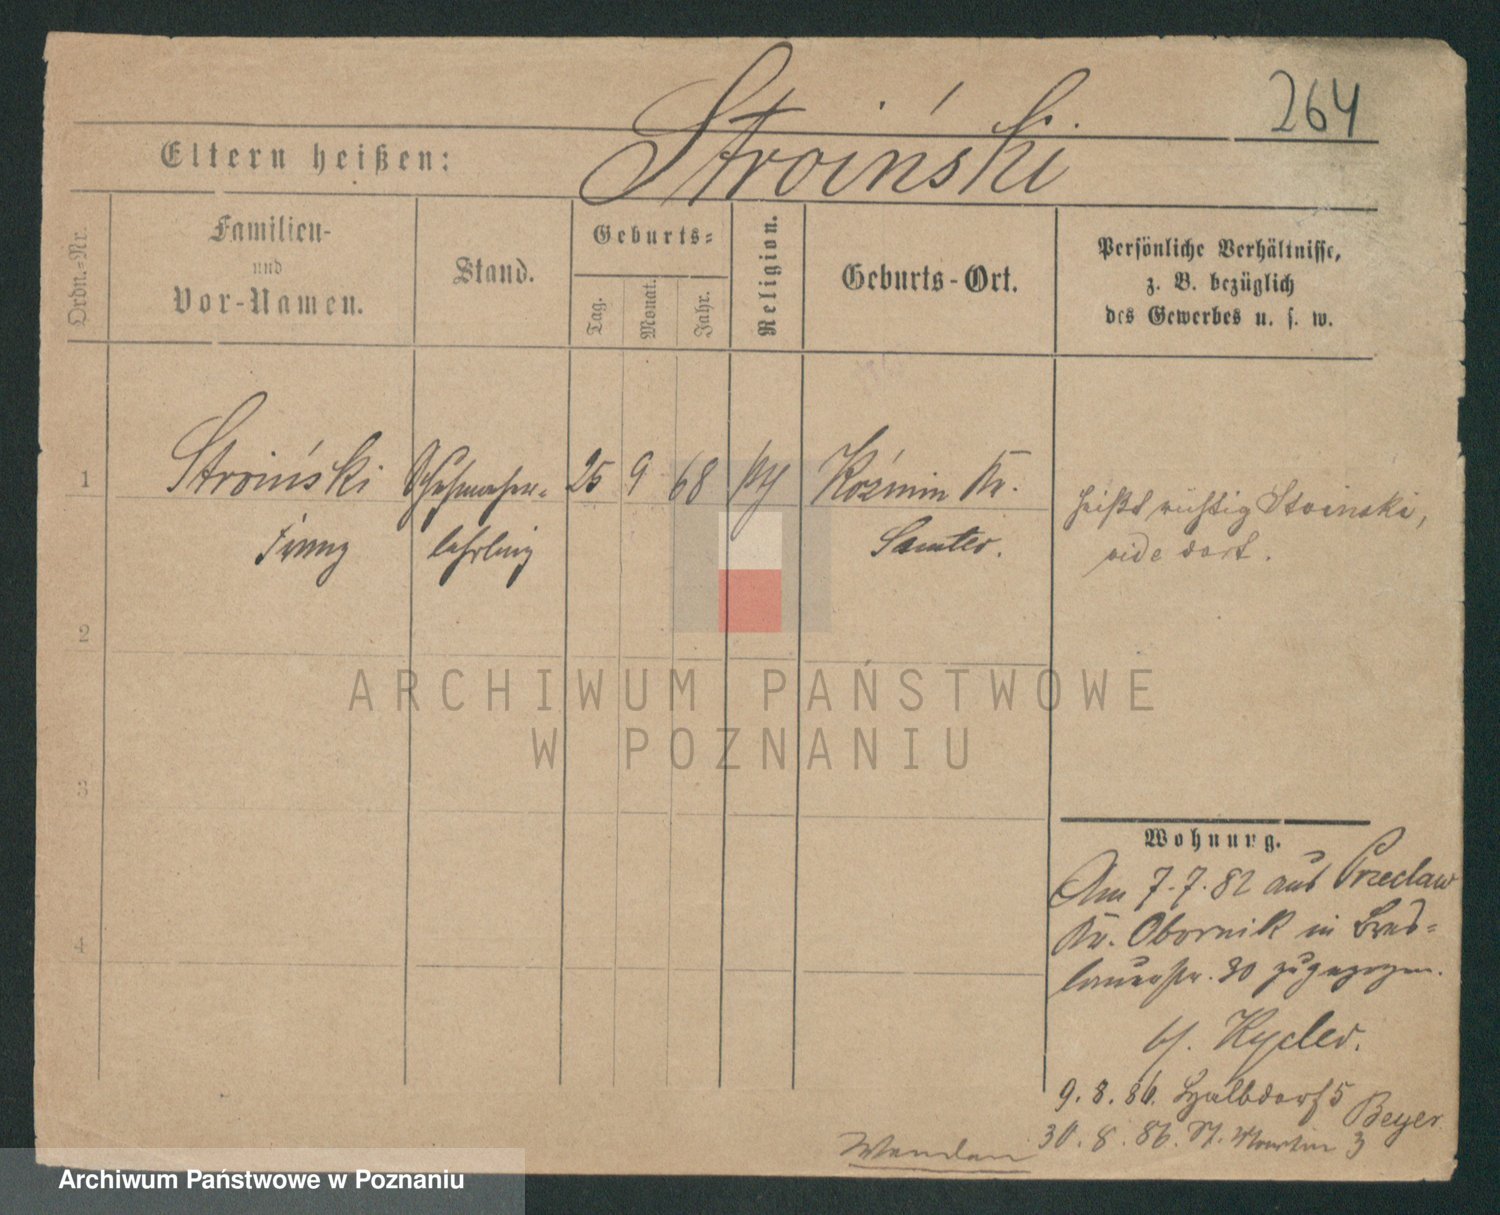 264
Stroiński
Eltern heißen:
Ordn.-Nr.
Familien-
und
Vor-Namen.
Stand.
Geburts-
Tag.
Monat.
Jahr.
Religion.
Geburts-Ort.
Persönliche Verhältnisse,
z. B. bezüglich
des Gewerbes u. s. w.
1 Stroiński Schuhmacher- 25 9 68 Kózmin Kr.
Franz lehrling Samter.
heißt richtig Stoinski,
vide dort.
2
3
4
ARCHIWUM PAŃSTWOWE
W POZNANIU
Wohnung.
Am 7.7.82 aus Przeclaw
Kr. Obornik in Bres-
lauerstr. 30 zugezogen.
b/. Rycler.
9. 8. 86. Halbdorf 5
Beyer
30. 8. 86. St. Martin 3
Archiwum Państwowe w Poznaniu